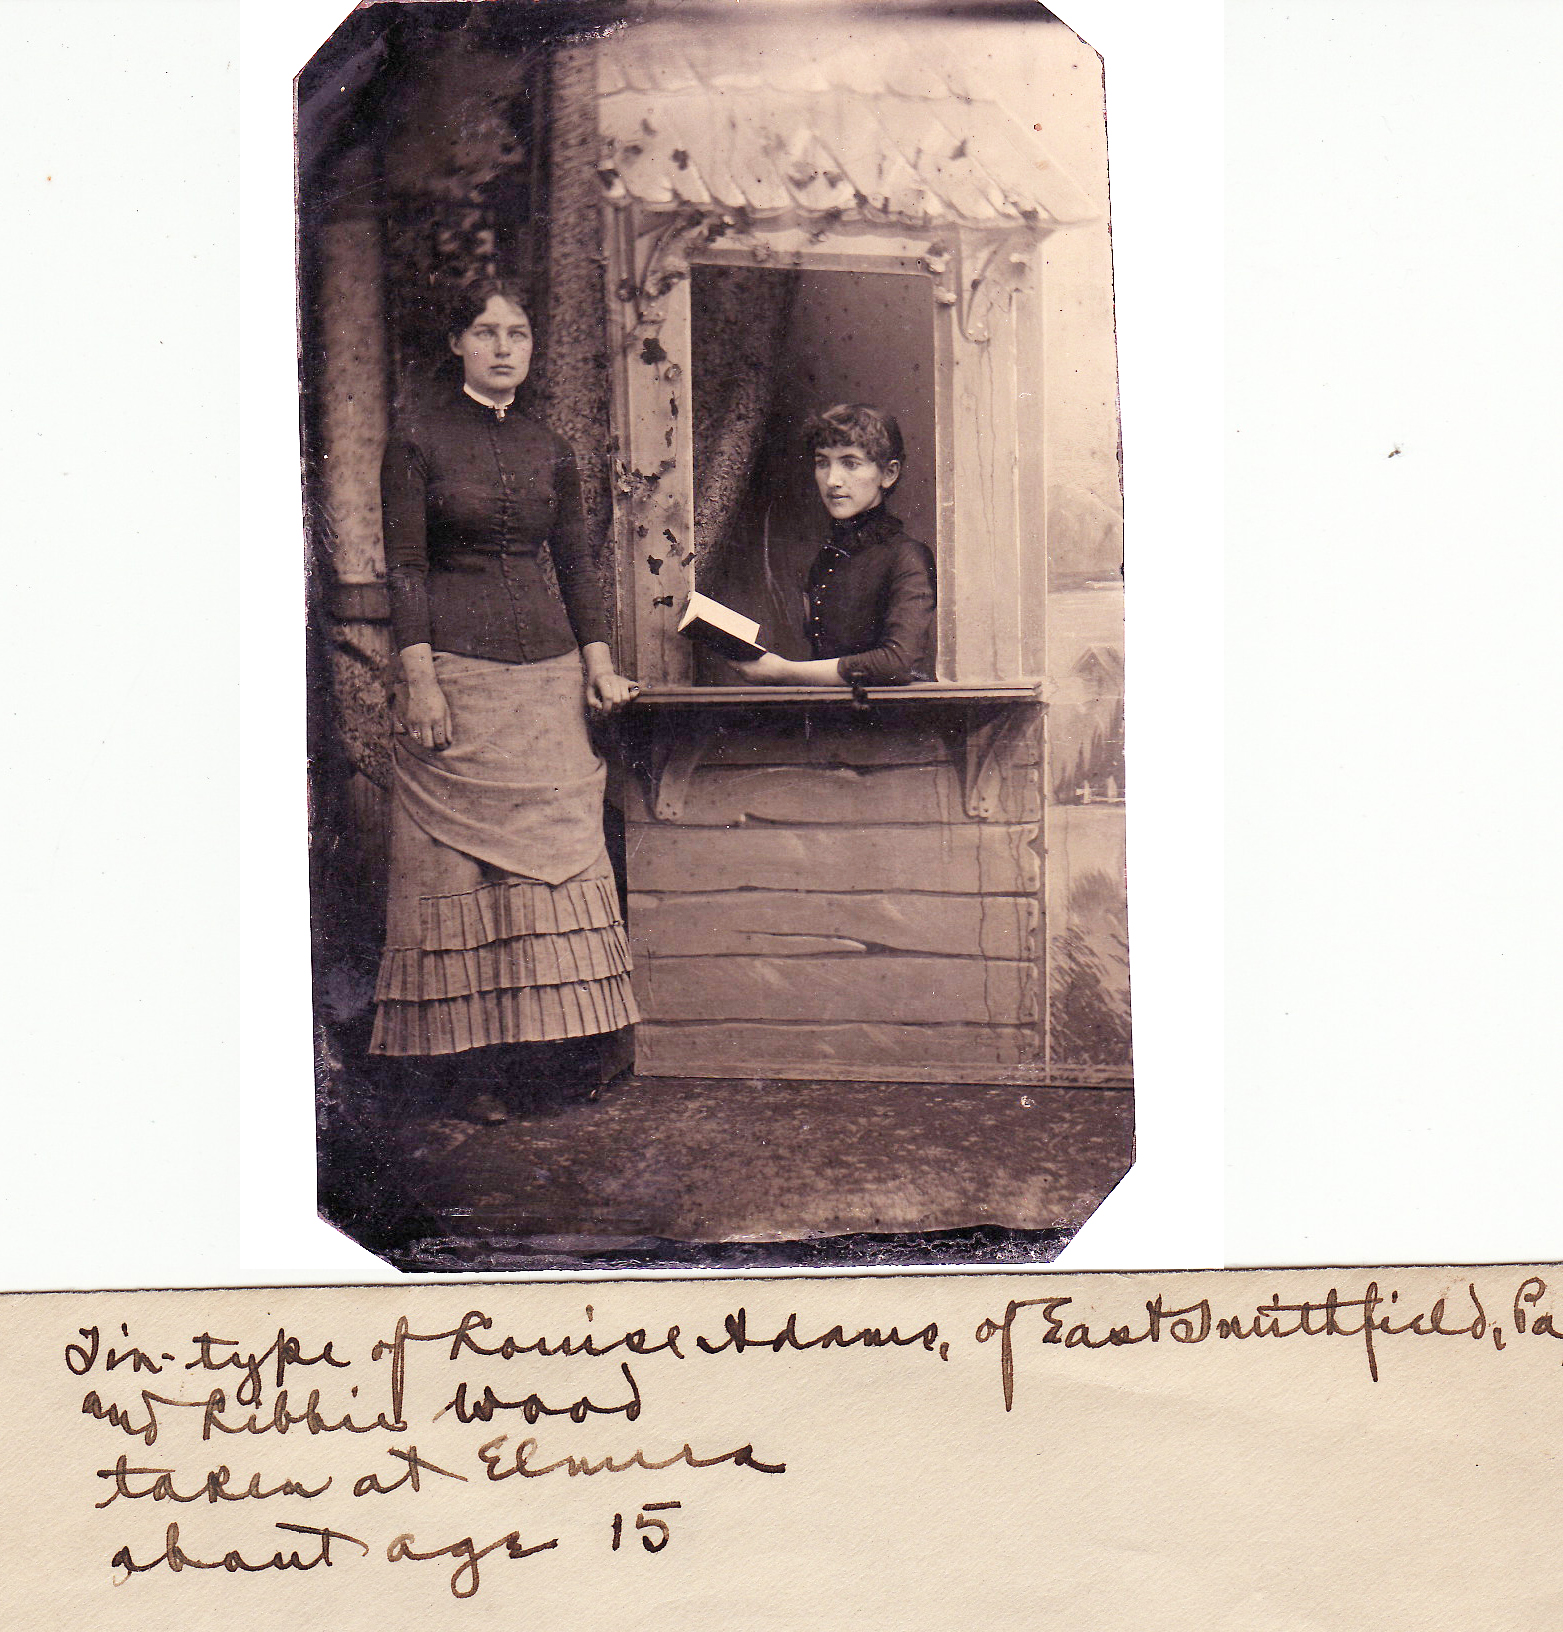 Tin-type of Louise Adams, of East Smithfield, Pa
and Libbie Wood
taken at Elmira
about age 15